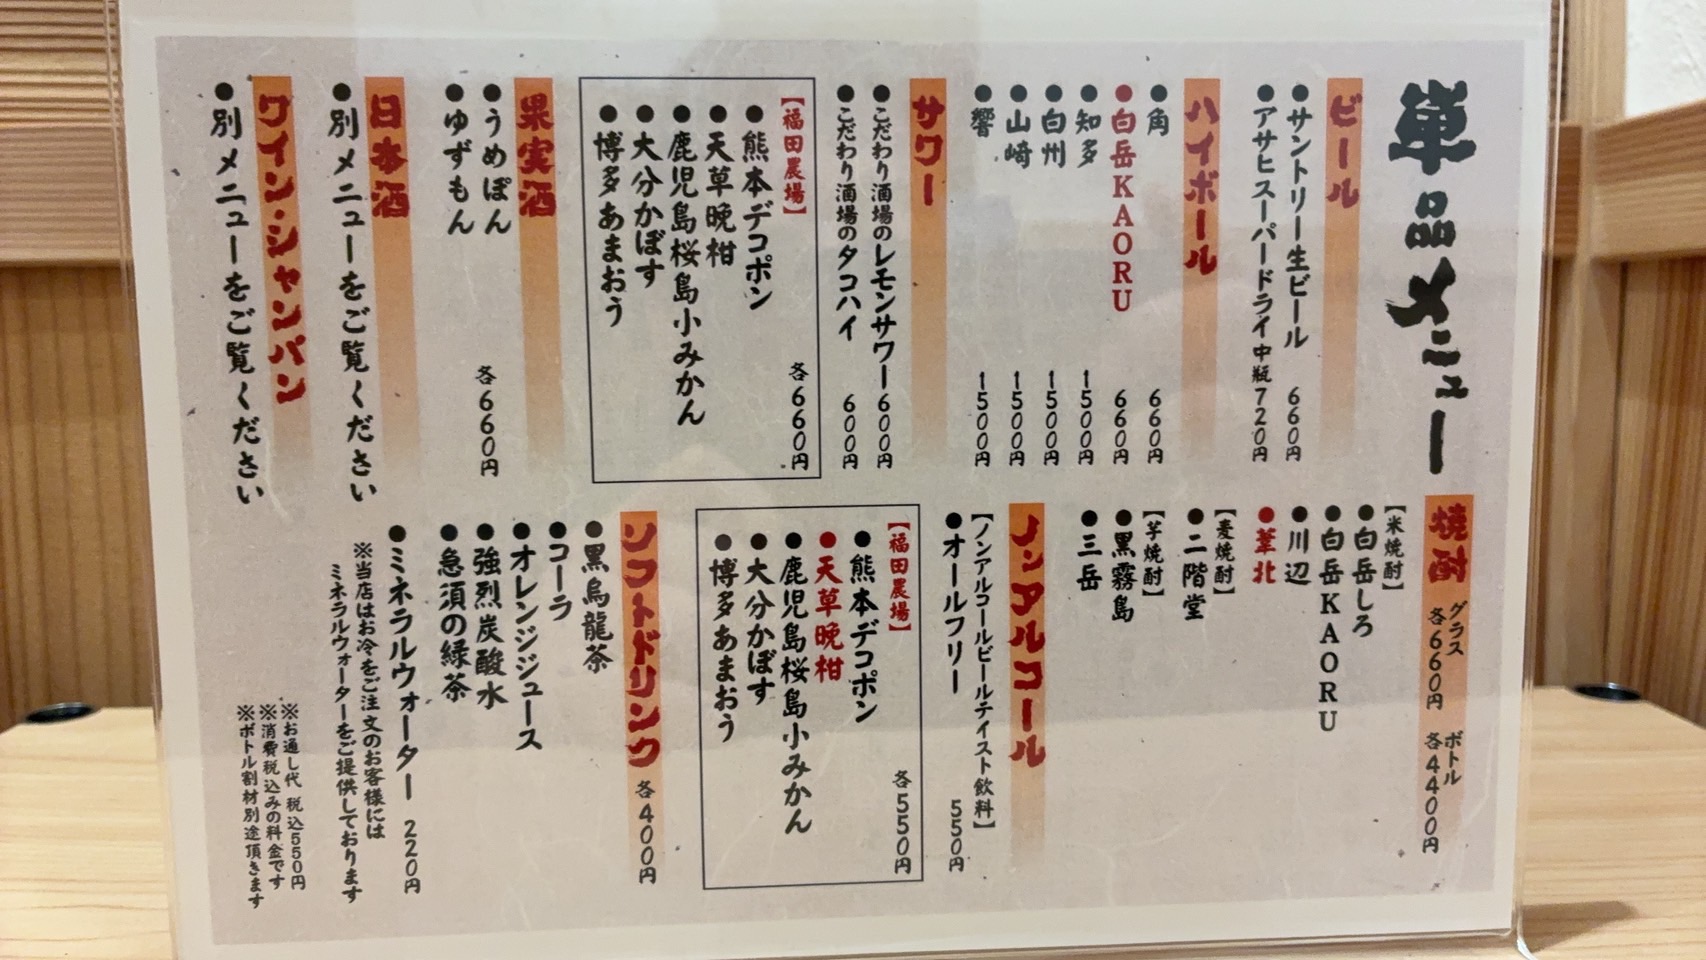 単品メニュー
ビール
●サントリー生ビール 660円
●アサヒスーパードライ 中瓶720円
ハイボール
●角 660円
●白岳KAORU 660円
●知多 1500円
●白州 1500円
●山崎 1500円
●響 1500円
サワー
●こだわり酒場のレモンサワー600円
●こだわり酒場のタコハイ 600円
【福田農場】 各660円
●熊本デコポン
●天草晩柑
●鹿児島桜島小みかん
●大分かぼす
●博多あまおう
果実酒
●うめぽん
●ゆずもん
各660円
日本酒
●別メニューをご覧ください
ワイン・シャンパン
●別メニューをご覧ください
焼酎 グラス 各660円 ボトル 各4400円
【米焼酎】
●白岳しろ
●白岳KAORU
●川辺
●葦北
【麦焼酎】
●二階堂
【芋焼酎】
●黒霧島
●三岳
ノンアルコール
【ノンアルコールビールテイスト飲料】
●オールフリー 550円
【福田農場】 各550円
●熊本デコポン
●天草晩柑
●鹿児島桜島小みかん
●大分かぼす
●博多あまおう
ソフトドリンク 各400円
●黒烏龍茶
●コーラ
●オレンジジュース
●強烈炭酸水
●急須の緑茶
●ミネラルウォーター 220円
※当店はお冷をご注文のお客様には
ミネラルウォーターをご提供しております
※お通し代 税込550円
※消費税込みの料金です
※ボトル割材別途頂きます